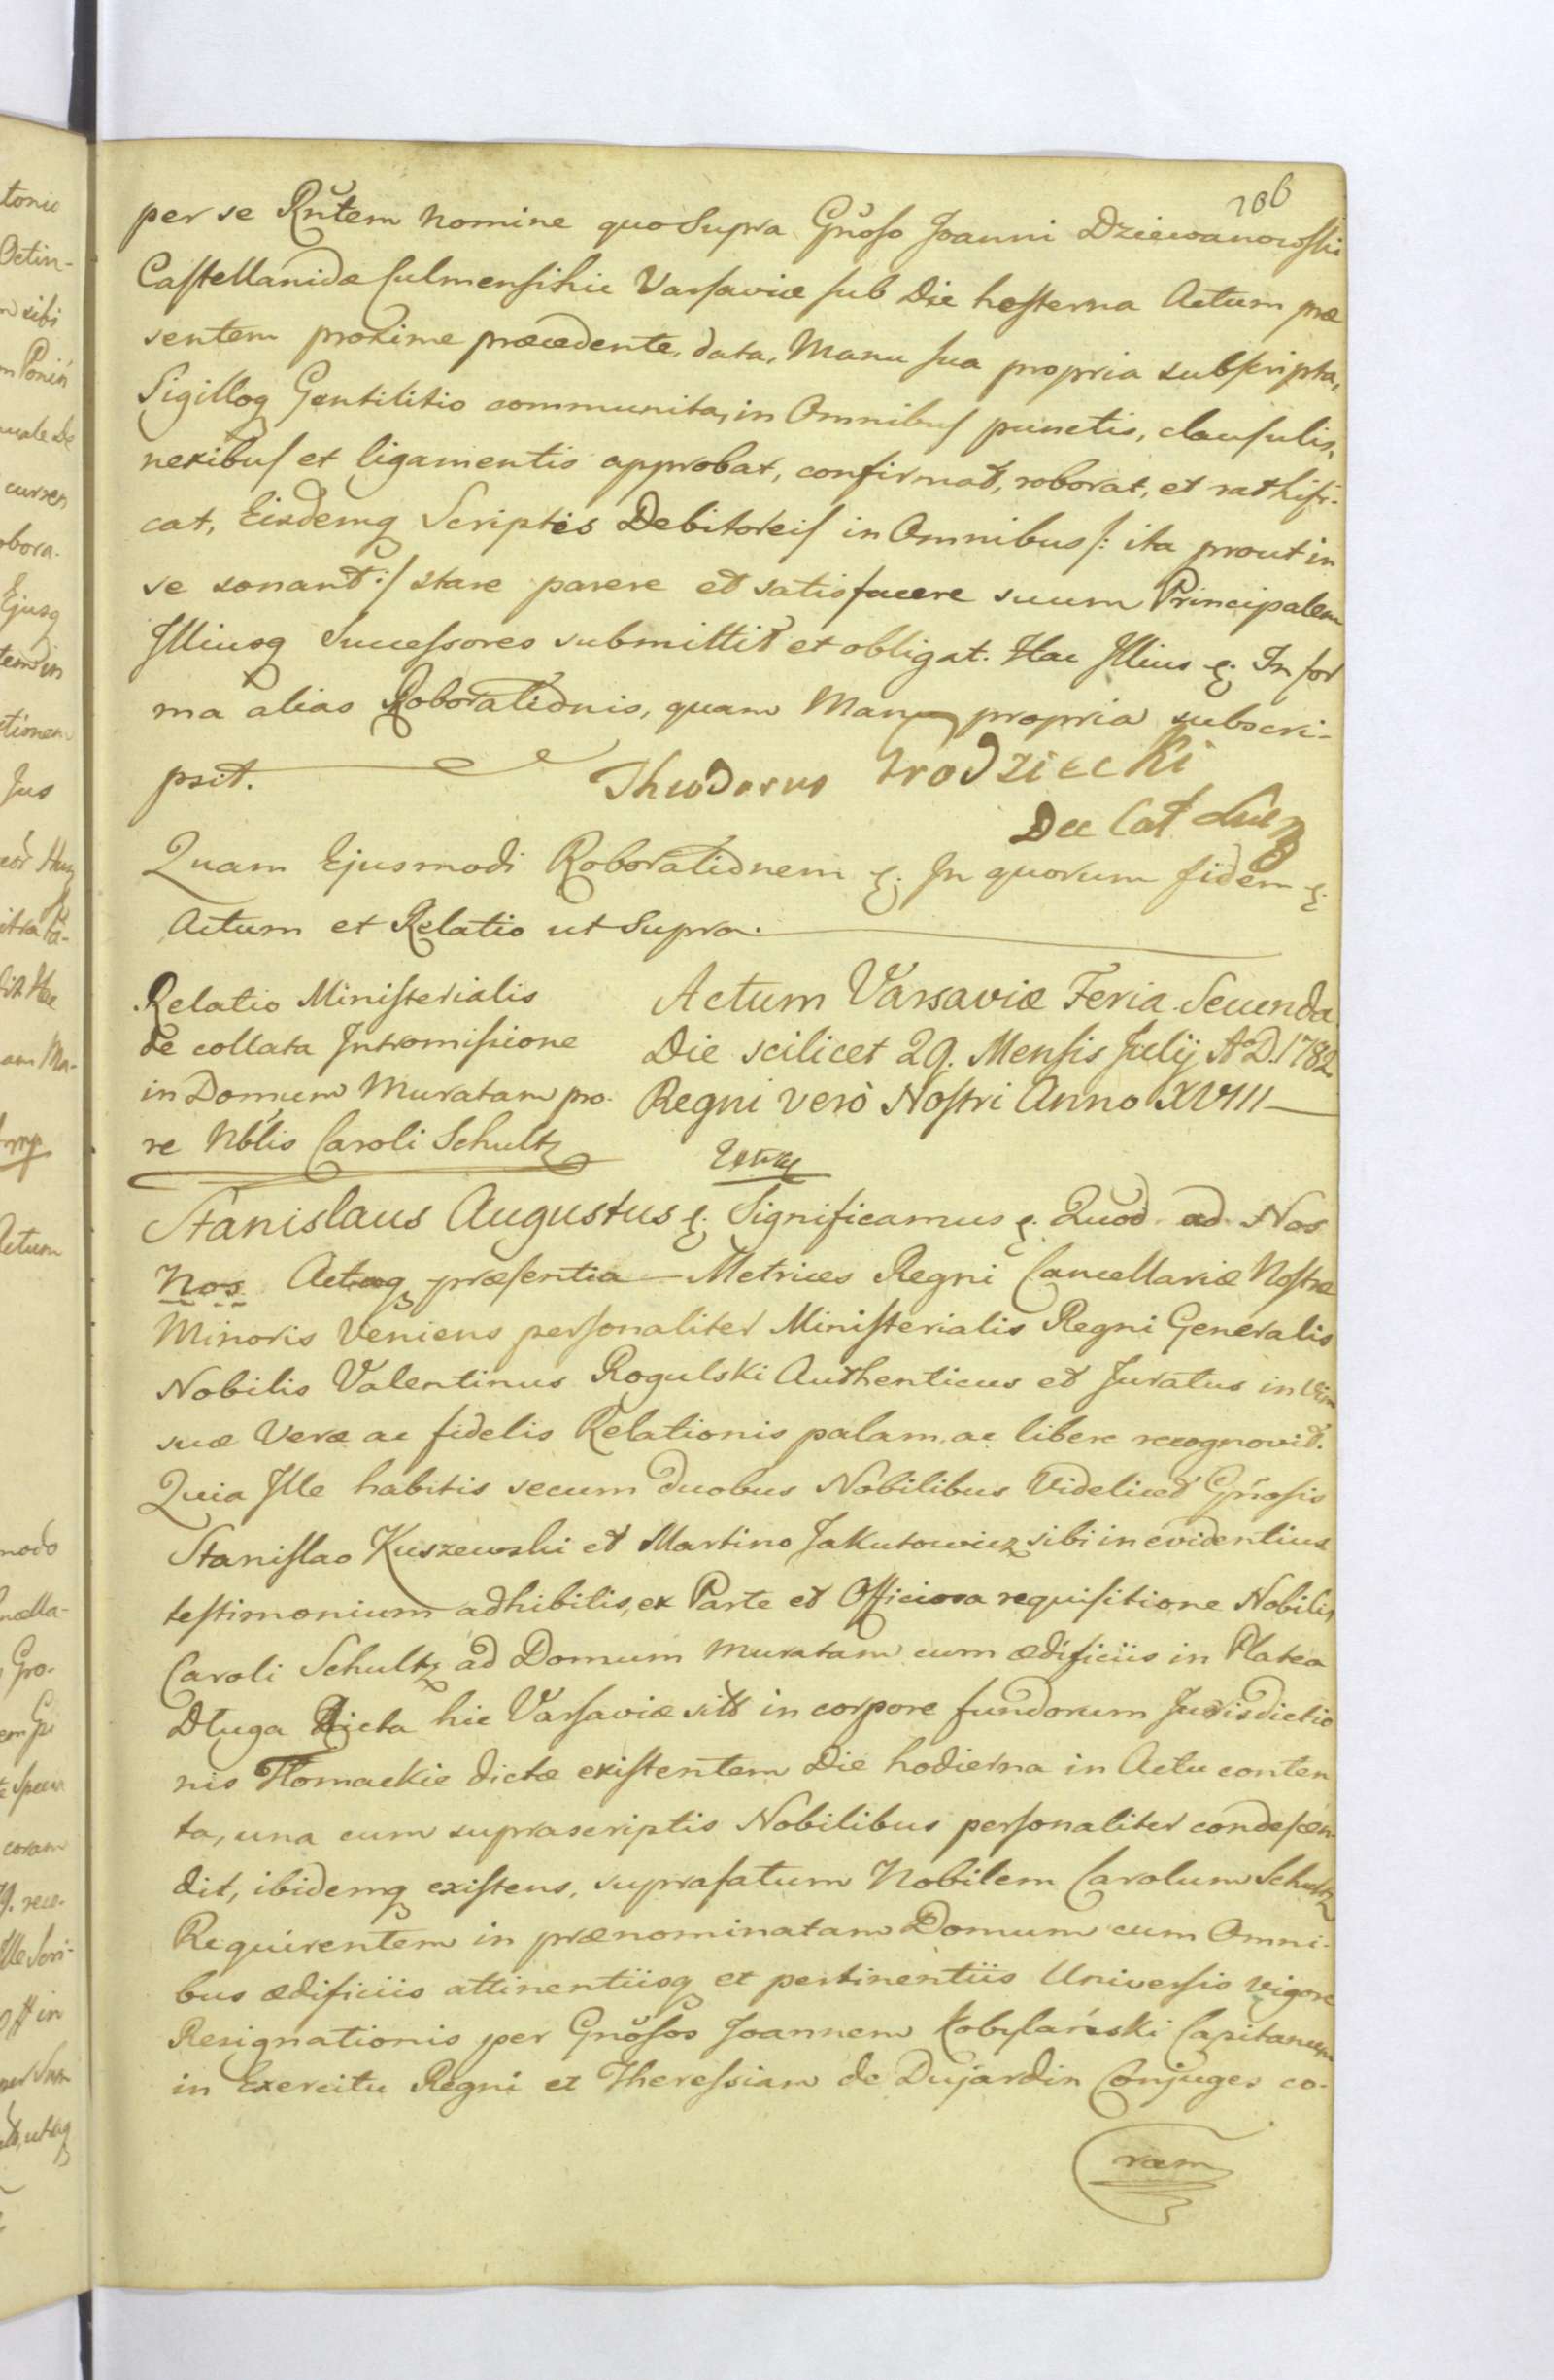 106
per se Rñtem nomine quo Supra Gñoso Joanni Dziewanowski
Castellanidæ Culmensi hic Varsaviæ sub Die hesterna Actum præ
sentem proxime præcedente, data, Manu sua propria subscripta,
Sigilloq Gentilitio communita, in Omnibus punctis, clausulis,
nexibus et ligamentis approbat, confirmat, roborat, et rathifi-
cat, Eisdemq Scriptis Debitoreis in Omnibus /: ita prout in
se sonant :/ stare parere et satisfacere suum Principalem
Illiusq Successores submittit et obligat. Hac Illius &. In for
ma alias Roborationis, quam Manu propria subscri-
psit. Theodorus Grodziecki
Quam Ejusmodi Roborationem &. In quorum fidem &.
Actum et Relatio ut Supra.
Relatio Ministerialis
de collata Intromissione
in Domum Muratam pro-
re Nblis Caroli Schultz
Actum Varsaviæ Feria Secunda
Die scilicet 29. Mensis Julij A°D. 1782.
Regni verò Nostri Anno XVIII
Stanislaus Augustus &. Significamus &. Quod ad Nos
Nos Actaq præsentia Metrices Regni Cancellariæ Nostræ
Minoris Veniens personaliter Ministerialis Regni Generalis
Nobilis Valentinus Rogulski Authenticus et Juratus in Vim
suæ Veræ ac fidelis Relationis palam ac libere recognovit.
Quia Ille habitis secum duobus Nobilibus Videlicet Gñosis
Stanislao Kuszewski et Martino Jakutowicz sibi in evidentius
testimonium adhibitis, ex Parte et Officiosa requisitione Nobilis
Caroli Schultz ad Domum Muratam cum ædificiis in Platea
Długa Dicta hic Varsaviæ sitt in corpore fundorum Jurisdictio
nis Tłomackie dictæ existentem Die hodierna in Actu conten
ta, una cum suprascriptis Nobilibus personaliter condescen
dit, ibidemq existens, suprafatum Nobilem Carolum Schultz
Requirentem in prænominatam Domum cum Omni-
bus ædificiis attinentiisq et pertinentiis Universis vigore
Resignationis per Gñosos Joannem Kobylański Capitaneum
in Exercitu Regni et Theressiam de Dujardin Conjuges co-
ram